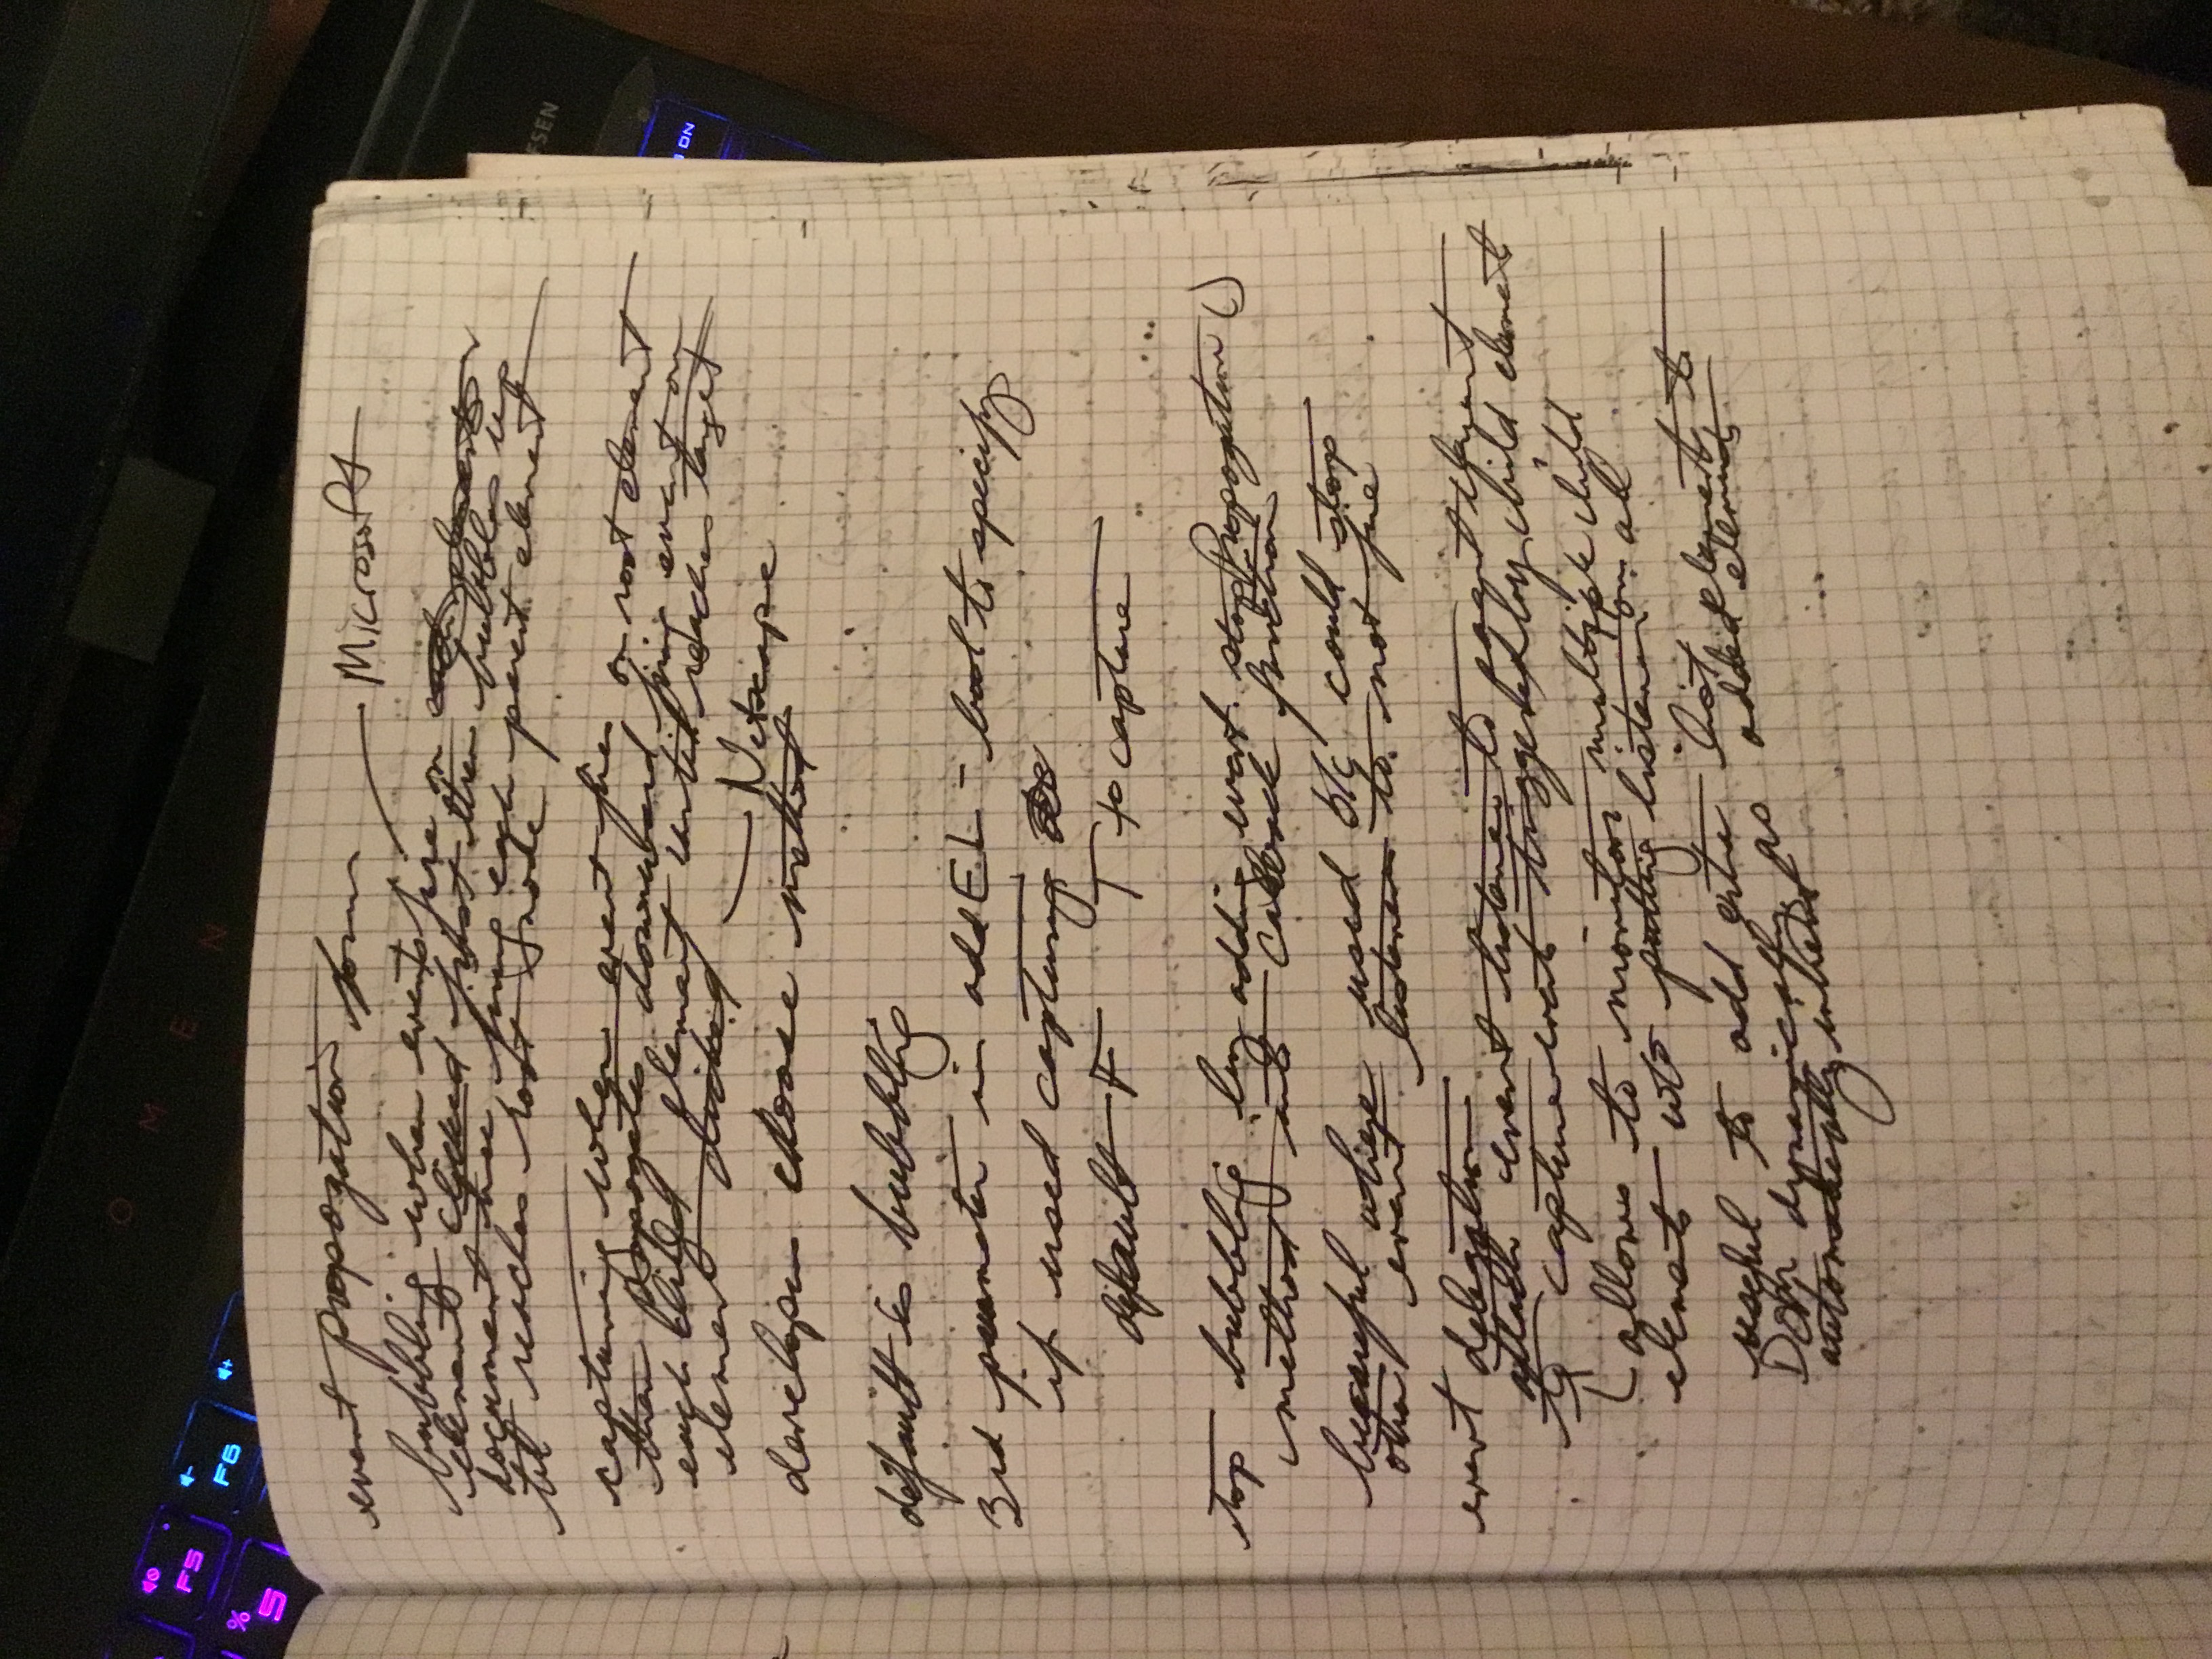 F5
F6
%
5
OMEN
FSEN
ON
event propogation forms
Microsoft
bubbling when events fire on
element clicked first then bubbles up
document tree, firing each parent element
til reaches root node
capturing when event fires on root element
then propogates downward firing event on
each child element until reaches target
element clicked
Netscape
developers choose method
default is bubbling
3rd parameter in add EL - bool to specify
if used capturing
default F T to capture
stop bubbling by adding event.stopPropogation()
method into callback function
be careful where used b/c could stop
other event listeners to not fire
event delegation
attach event listener to parent element
to capture events triggered by child element
allows to monitor multiple child
elements w/o putting listener on all
useful to add extra list elements to
DOM dynamically as added elements
automatically inherit